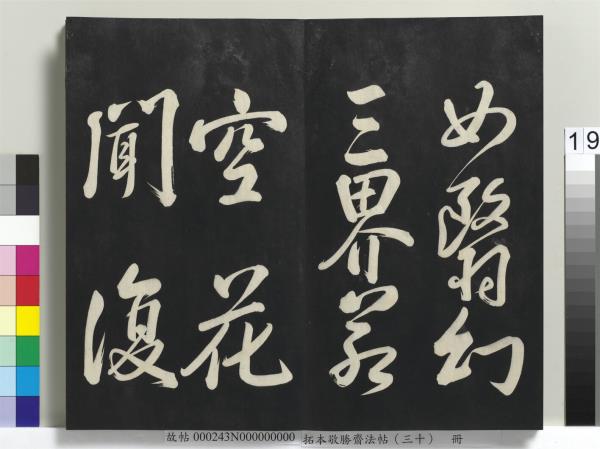 如翳幻
三界若
空花
聞復
19
故帖 000243N000000000 拓本敬勝齋法帖（三十） 冊